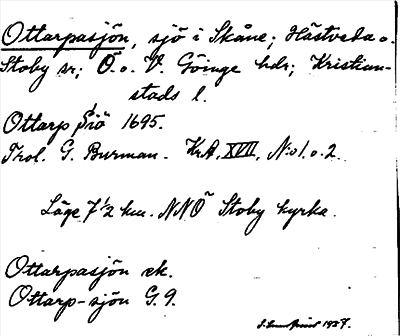 Ottarpasjön, sjö i Skåne; Hästveda o.
Stoby sr; Ö. o. V. Göinge hdr; Kristian-
stads l.
Ottarp Siö 1695.
Trol. G. Burman. Kr.A. XVII, N:o 1. o. 2.
Läge 7 1/2 km. NNÖ Stoby kyrka.
Ottarpasjön ek.
Ottarp-sjön G. 9.
1927.